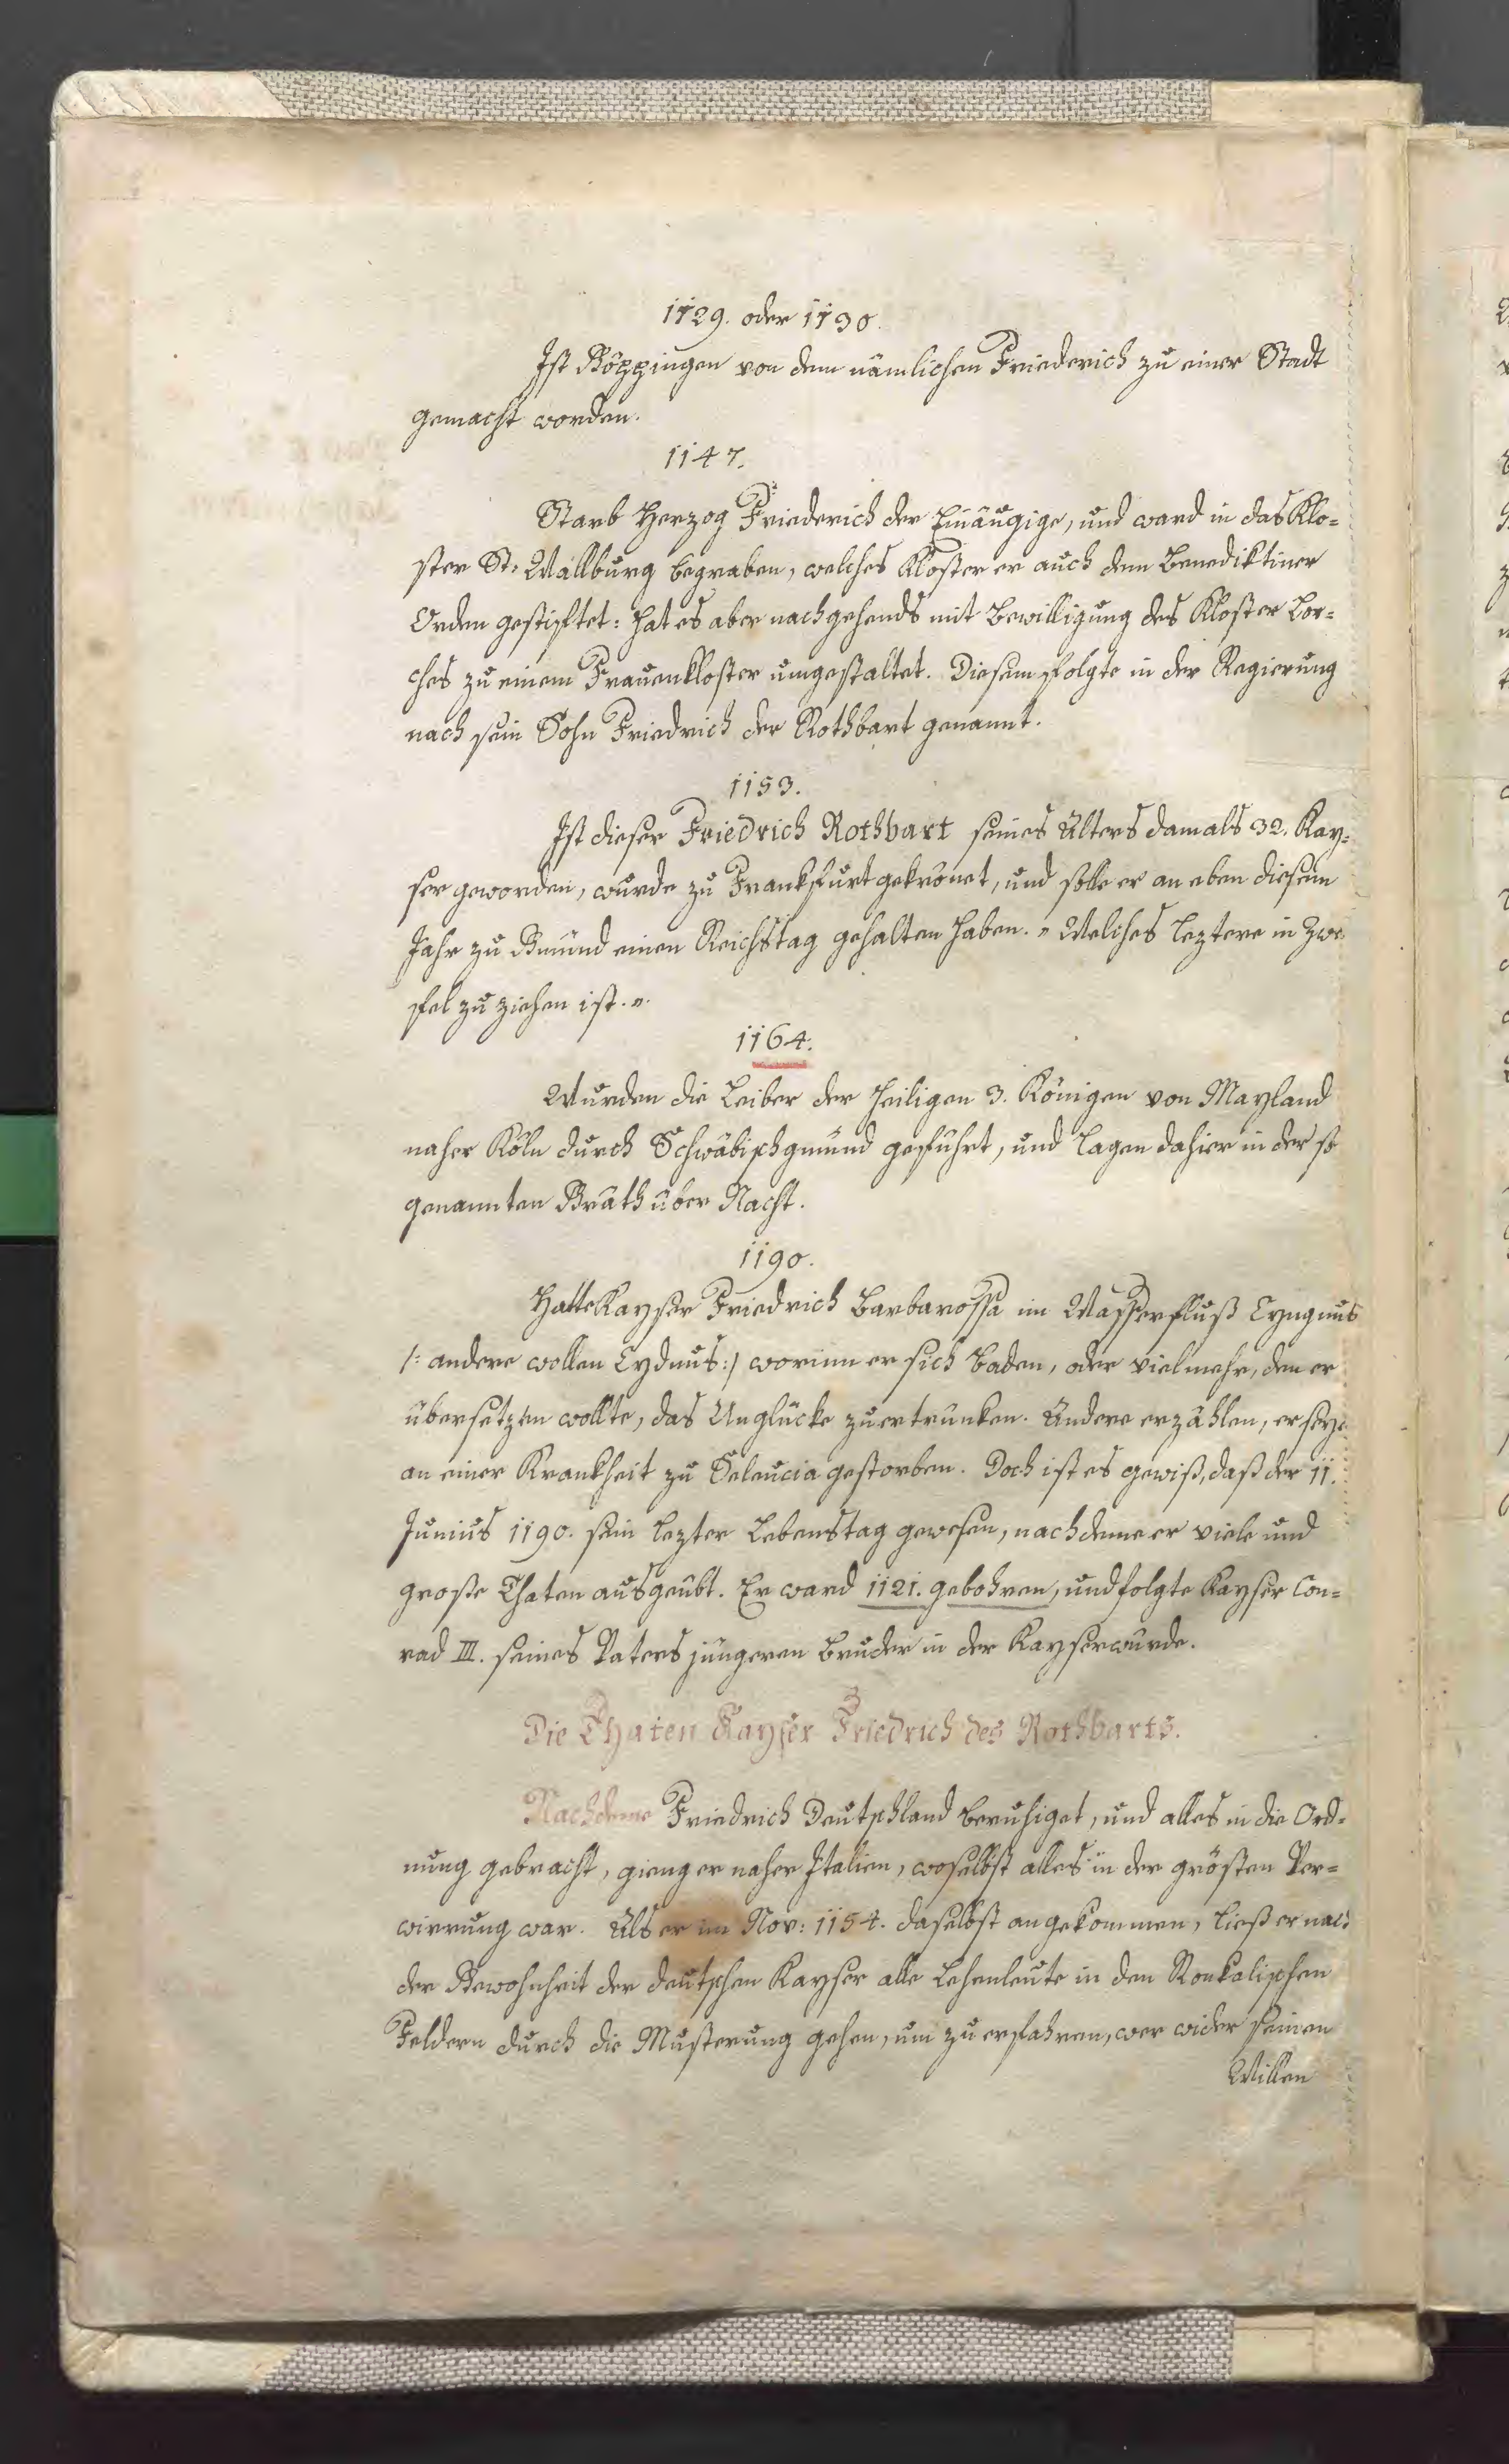 1129. oder 1130.
Ist Göppingen von dem nämlichen Friederich zu einer Stadt
gemacht worden.
1147.
Starb Herzog Friederich der Einäugige, und ward in das Klo-
ster St. Wallburg begraben, welches Kloster er auch dem Benediktiner
Orden gestiftet: hat es aber nachgehends mit Bewilligung des Kloster Lor-
ches zu einem Frauenkloster umgestaltet. Diesem folgte in der Regierung
nach sein Sohn Friedrich der Rothbart genannt.
1153.
Ist dieser Friedrich Rothbart seines Alters damals 32. Kay-
ser geworden, wurde zu Frankfurt gekrönet, und solle er an eben diesem
Jahr zu Gmünd einen Reichstag gehalten haben. „ Welches leztere in Zwe
fel zu ziehen ist. „
1164.
Wurden die Leiber der heiligen 3. Königen von Mayland
naher Köln durch Schwäbischgmünd geführt, und lagen dahier in der so
genannten Gräth über Nacht.
1190.
Hatte Kayser Friedrich Barbarossa im Wasserfluß Cyngnus
/: andere wollen Cydnus :/ worinn er sich baden, oder vielmehr, den er
übersetzen wollte, das Unglücke zu ertrünken. Andere erzählen, er seye
an einer Krankheit zu Seleucia gestorben. Doch ist es gewiß, daß der 11.
Junius 1190. sein lezter Lebenstag gewesen, nachdeme er viele und
große Thaten ausgeübt. Er ward 1121. gebohren, und folgte Kayser Con-
rad III. seines Vaters jüngeren Bruder in der Kayserwürde.
Die Thaten Kayser Friedrich des Rothbarts.
Nachdeme Friedrich Deutschland beruhiget, und alles in die Ord-
nung gebracht, gieng er naher Italien, woselbst alles in der grösten Ver-
wirrung war. Als er im Nov: 1154. daselbst angekommen, ließ er nach
der Gewohnheit der deutschen Kayser alle Lehenleute in den Ronkalischen
Feldern durch die Musterung gehen, um zu erfahren, wer wider seinen
Willen